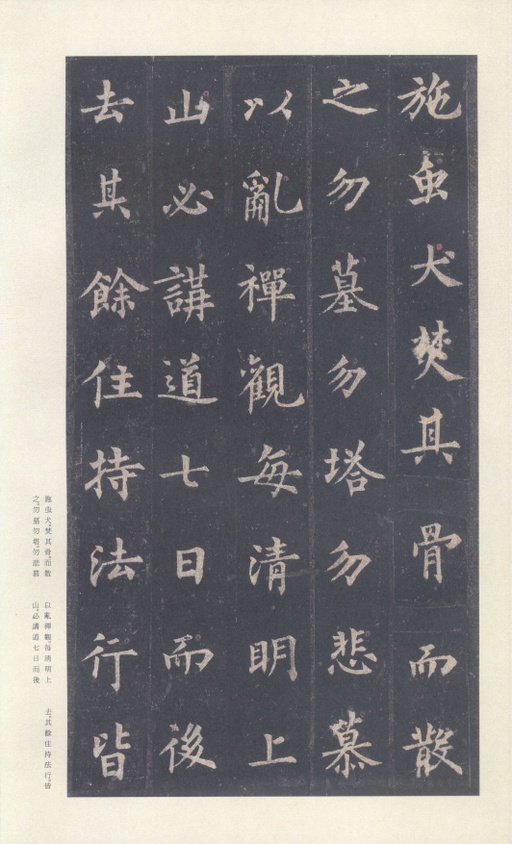 施虫犬焚其骨而散
之勿墓勿塔勿悲慕
以亂禪觀每清明上
山必講道七日而後
去其餘住持法行皆
施虫犬。焚其骨。而散
之。勿墓勿塔。勿悲慕
以亂禪觀。每清明上
山。必講道七日而後
去。其餘住持法行。皆